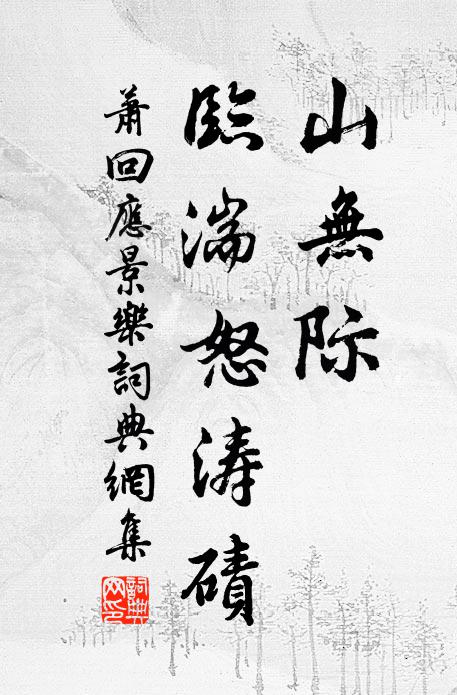 山無际
臨湍怒涛磧
蕭回應景樂詞典網集
詞典
网印